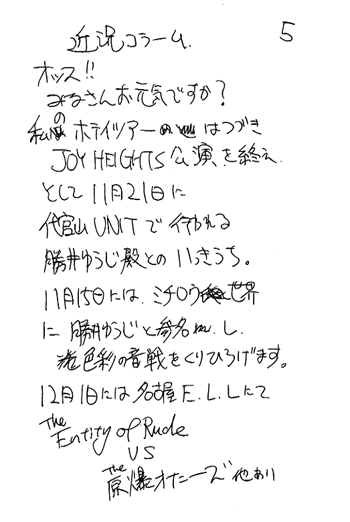 近況コラム. 5
オッス!!
みなさんお元気ですか?
私のホテイツアーはつづき
JOY HEIGHTS公演を終え.
そして11月21日に
代官山UNITで行われる
勝井ゆうじ殿とのいっきうち。
11月15日には、ミチロウ世界
に勝井ゆうじと参名m.l.
色彩の音戦をくりひろげます。
12月1日には名古屋E.L.Lにて
The Entity of Rude
VS
The 原爆オナニーズ他あり